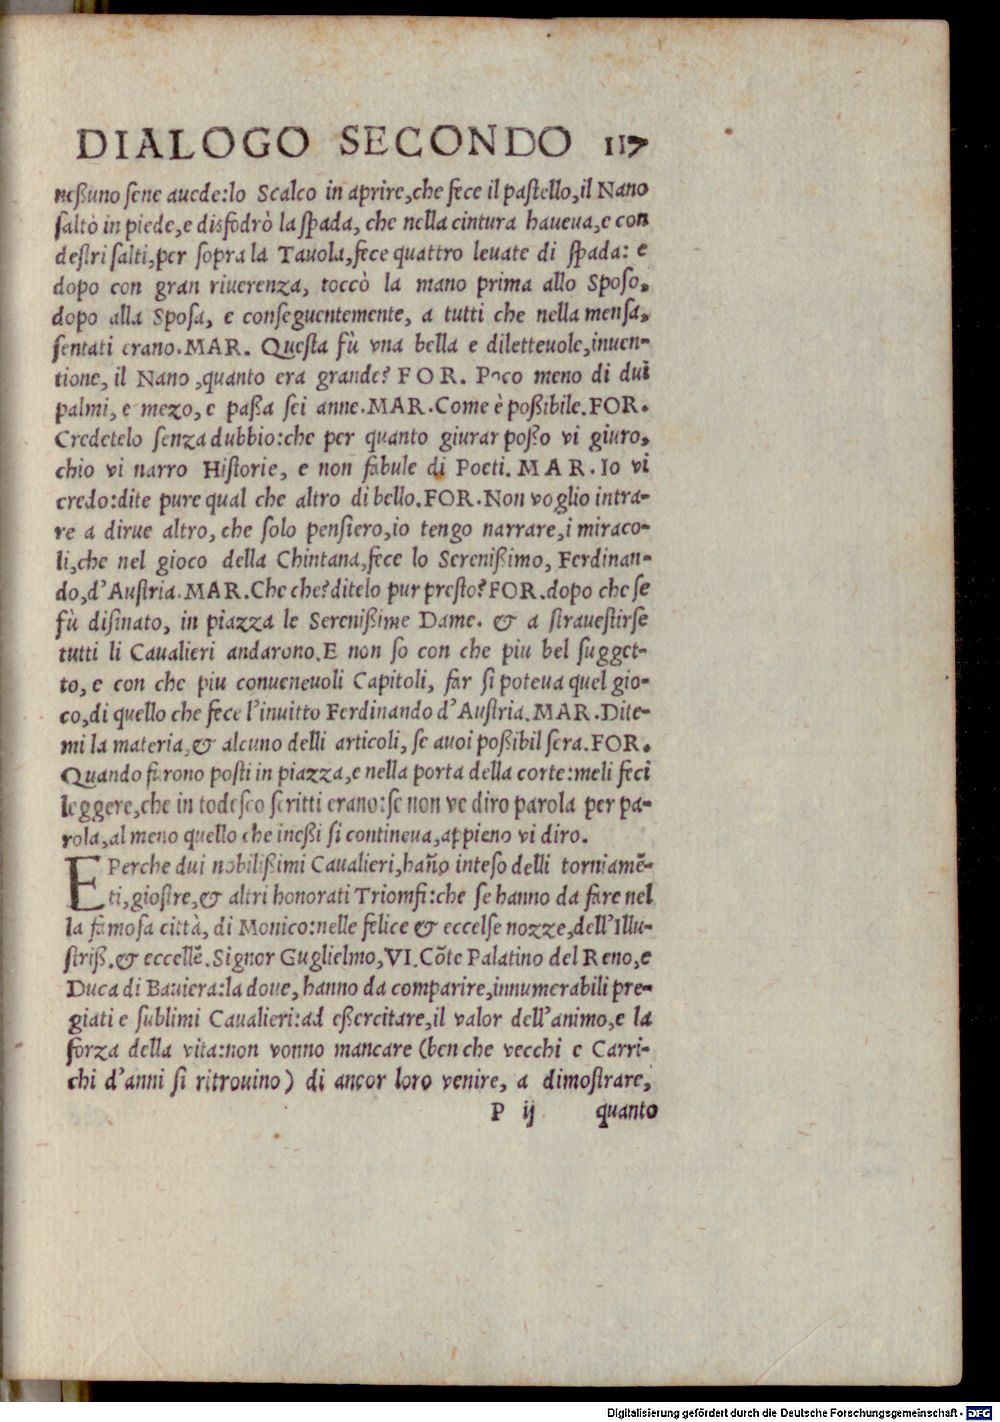 DIALOGO SECONDO 117
neßuno sene auede:lo Scalco in aprire,che fece il pastello,il Nano
saltò in piede,e disfodrò la spada, che nella cintura haueua,e con
destri salti,per sopra la Tauola,fece quattro leuate di spada: e
dopo con gran riuerenza, toccò la mano prima allo Sposo,
dopo alla Sposa, e conseguentemente, a tutti che nella mensa,
sentati erano.MAR. Questa fù vna bella e diletteuole,inuen-
tione, il Nano ,quanto era grande? FOR. Poco meno di dui
palmi, e mezo, e paßa sei anne.MAR.Come è poßibile.FOR.
Credetelo senza dubbio:che per quanto giurar poßo vi giuro,
chio vi narro Historie, e non fabule di Poeti. MAR. Io vi
credo:dite pure qual che altro di bello.FOR.Non voglio intra-
re a dirue altro, che solo pensiero,io tengo narrare,i miraco-
li,che nel gioco della Chintana,fece lo Serenißimo, Ferdinan-
do,d'Austria.MAR.Che che?ditelo pur presto?FOR.dopo che se
fù disinato, in piazza le Serenißime Dame. & a strauestirse
tutti li Caualieri andarono.E non so con che piu bel sugget-
to, e con che piu conueneuoli Capitoli, far si poteua quel gio-
co,di quello che fece l'inuitto Ferdinando d'Austria.MAR.Dite-
mi la materia,& alcuno delli articoli, se auoi poßibil sera.FOR.
Quando furono posti in piazza,e nella porta della corte:meli feci
leggere,che in todesco scritti erano:se non ve diro parola per pa-
rola,al meno quello che ineßi si contineua,appieno vi diro.
E Perche dui nobilißimi Caualieri,hañо inteso delli torniamẽ-
ti,giostre,& altri honorati Triomfi:che se hanno da fare nel
la famosa città, di Monico:nelle felice & eccelse nozze,dell'Illu-
striß.& eccellẽ.Signor Guglielmo,VI.Cõte Palatino del Reno,e
Duca di Bauiera:la doue, hanno da comparire,innumerabili pre-
giati e sublimi Caualieri:ad eßercitare,il valor dell'animo,e la
forza della vita:non vonno mancare (ben che vecchi e Carri-
chi d'anni si ritrouino) di ancor loro venire, a dimostrare,
P ij quanto
Digitalisierung gefördert durch die Deutsche Forschungsgemeinschaft - DFG